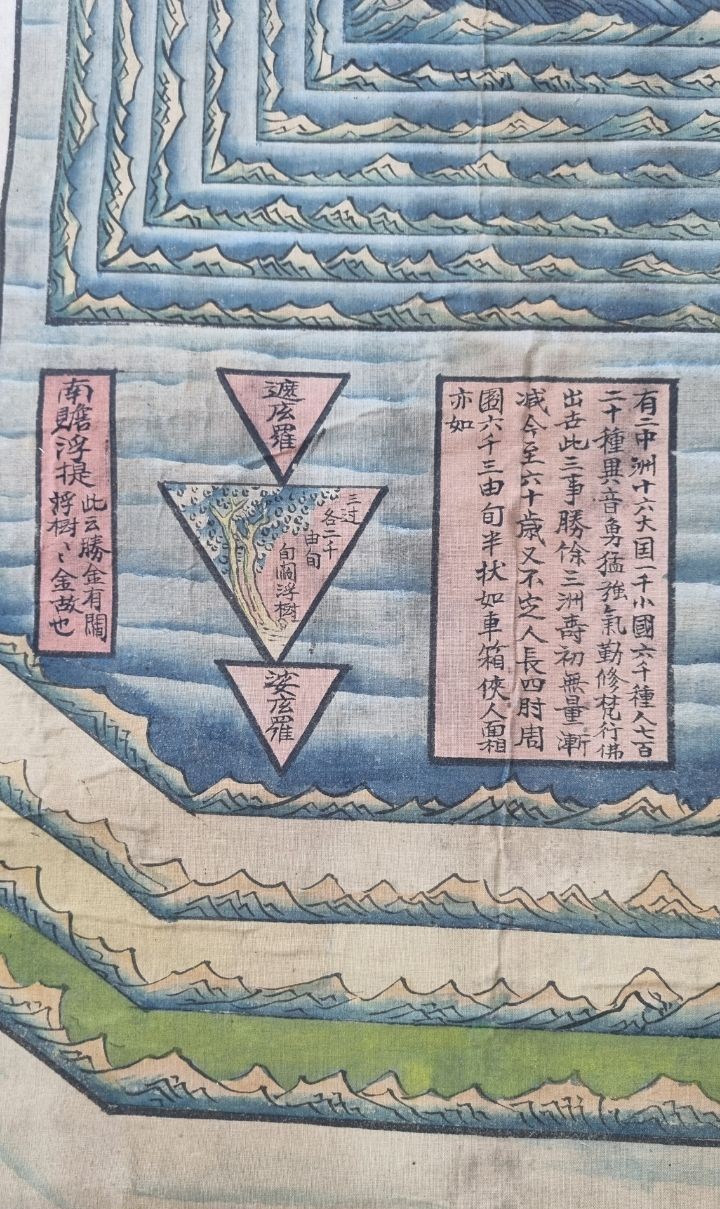 有二中洲十六大囯一千小國六千種人七百
二十種異音勇猛強氣勤修梵行佛
出世此三事勝餘三洲壽初無量漸
减今至六十歲又不定人長四肘周
圍六千三由旬半状如車箱俠人面相
亦如
遮庅羅
三过
各二千
由旬
旬阎浮樹
婆庅羅
南贍浮提
此云勝金有閻
浮樹〻金故也